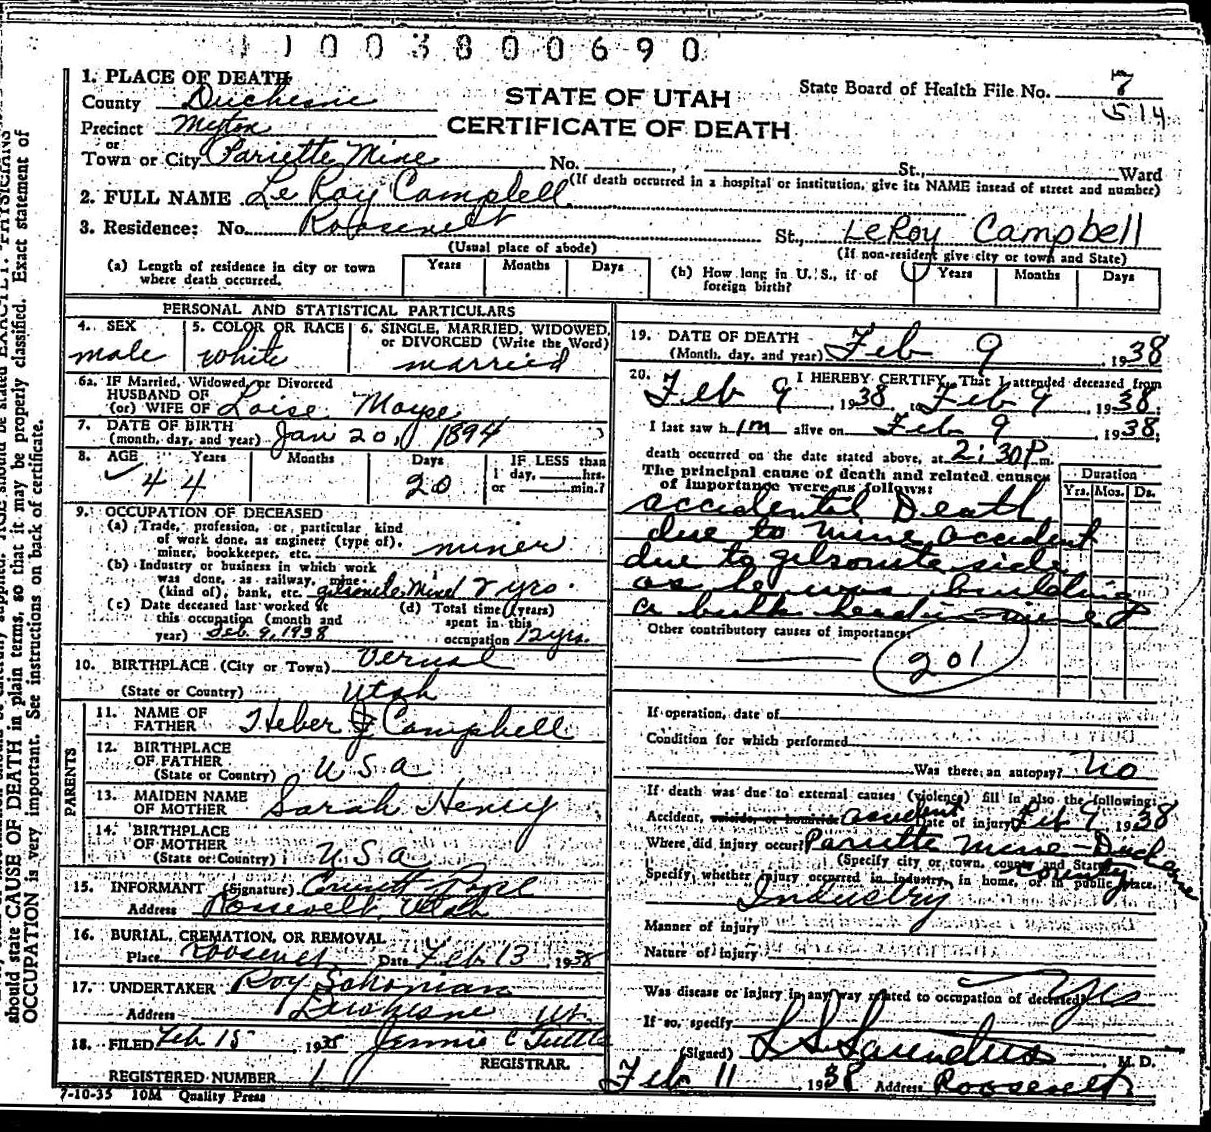 1 1 0 0 3 8 0 0 6 9 0
1. PLACE OF DEATH
County Duchesne
Precinct Myton
or
Town or City Pariette Mine No. St., Ward
STATE OF UTAH
CERTIFICATE OF DEATH
State Board of Health File No. 7
514
(If death occurred in a hospital or institution, give its NAME insead of street and number)
2. FULL NAME Le Roy Campbell
3. Residence: No. Roosevelt St., LeRoy Campbell
(Usual place of abode) (If non-resident give city or town and State)
(a) Length of residence in city or town
where death occurred.
Years Months Days
(b) How long in U. S., if of
foreign birth?
Years Months Days
PERSONAL AND STATISTICAL PARTICULARS
4. SEX
male
5. COLOR OR RACE
white
6. SINGLE, MARRIED, WIDOWED,
or DIVORCED (Write the Word)
married
6a. IF Married, Widowed, or Divorced
HUSBAND OF
(or) WIFE OF Loise
7. DATE OF BIRTH
(month, day, and year) Jan 20, 1894
8. AGE Years Months Days
44 20
IF LESS than
1 day, hrs.
or min.?
9. OCCUPATION OF DECEASED
(a) Trade, profession, or particular kind
of work done, as engineer (type of),
miner, bookkeeper, etc. miner
(b) Industry or business in which work
was done, as railway, mine
(kind of), bank, etc. gilsonite Mine 2 yrs.
(c) Date deceased last worked at
this occupation (month and
year) Feb. 9, 1938
(d) Total time (years)
spent in this
occupation 12 yrs.
10. BIRTHPLACE (City or Town) Vernal
(State or Country) Utah
PARENTS
11. NAME OF
FATHER Heber J Campbell
12. BIRTHPLACE
OF FATHER
(State or Country) U S A
13. MAIDEN NAME
OF MOTHER Sarah Henry
14. BIRTHPLACE
OF MOTHER
(State or Country) U S A
15. INFORMANT (Signature)
Address Roosevelt, Utah
16. BURIAL, CREMATION, OR REMOVAL
Place Roosevelt Date Feb 13, 1938
17. UNDERTAKER Roy
Address Duchesne Ut.
18. FILED Feb 15, 1938 Jennie C Tuttle
REGISTRAR.
REGISTERED NUMBER 1
7-10-35 10M Quality Press
19. DATE OF DEATH
(Month, day, and year) Feb 9, 1938
20. I HEREBY CERTIFY, That I attended deceased from
Feb 9, 1938, Feb 9, 1938.
I last saw h im alive on Feb 9, 1938;
death occurred on the date stated above, at 2:30 P m.
The principal cause of death and related causes
of importance were as follows:
Duration
Yrs. Mos. Ds.
accidental Death
due to mine accident
due to gilsonite slide
as he was building
a bulk head in mine
Other contributory causes of importance:
201
If operation, date of
Condition for which performed
Was there an autopsy? no
If death was due to external causes (violence) fill in also the following:
Accident, suicide, or homicide accident Date of injury Feb 9 1938
Where did injury occur? Pariette mine - Duchesne
County
(Specify city or town, county and State)
Specify whether injury occurred in industry, in home, or in public place.
Industry
Manner of injury
Nature of injury
Was disease or injury in any way related to occupation of deceased? yes
If so, specify
(Signed) L S Saunders M. D.
Feb 11, 1938 Address Roosevelt
should state CAUSE OF DEATH in plain terms, so that it may be properly classified. Exact statement of
OCCUPATION is very important. See instructions on back of certificate.